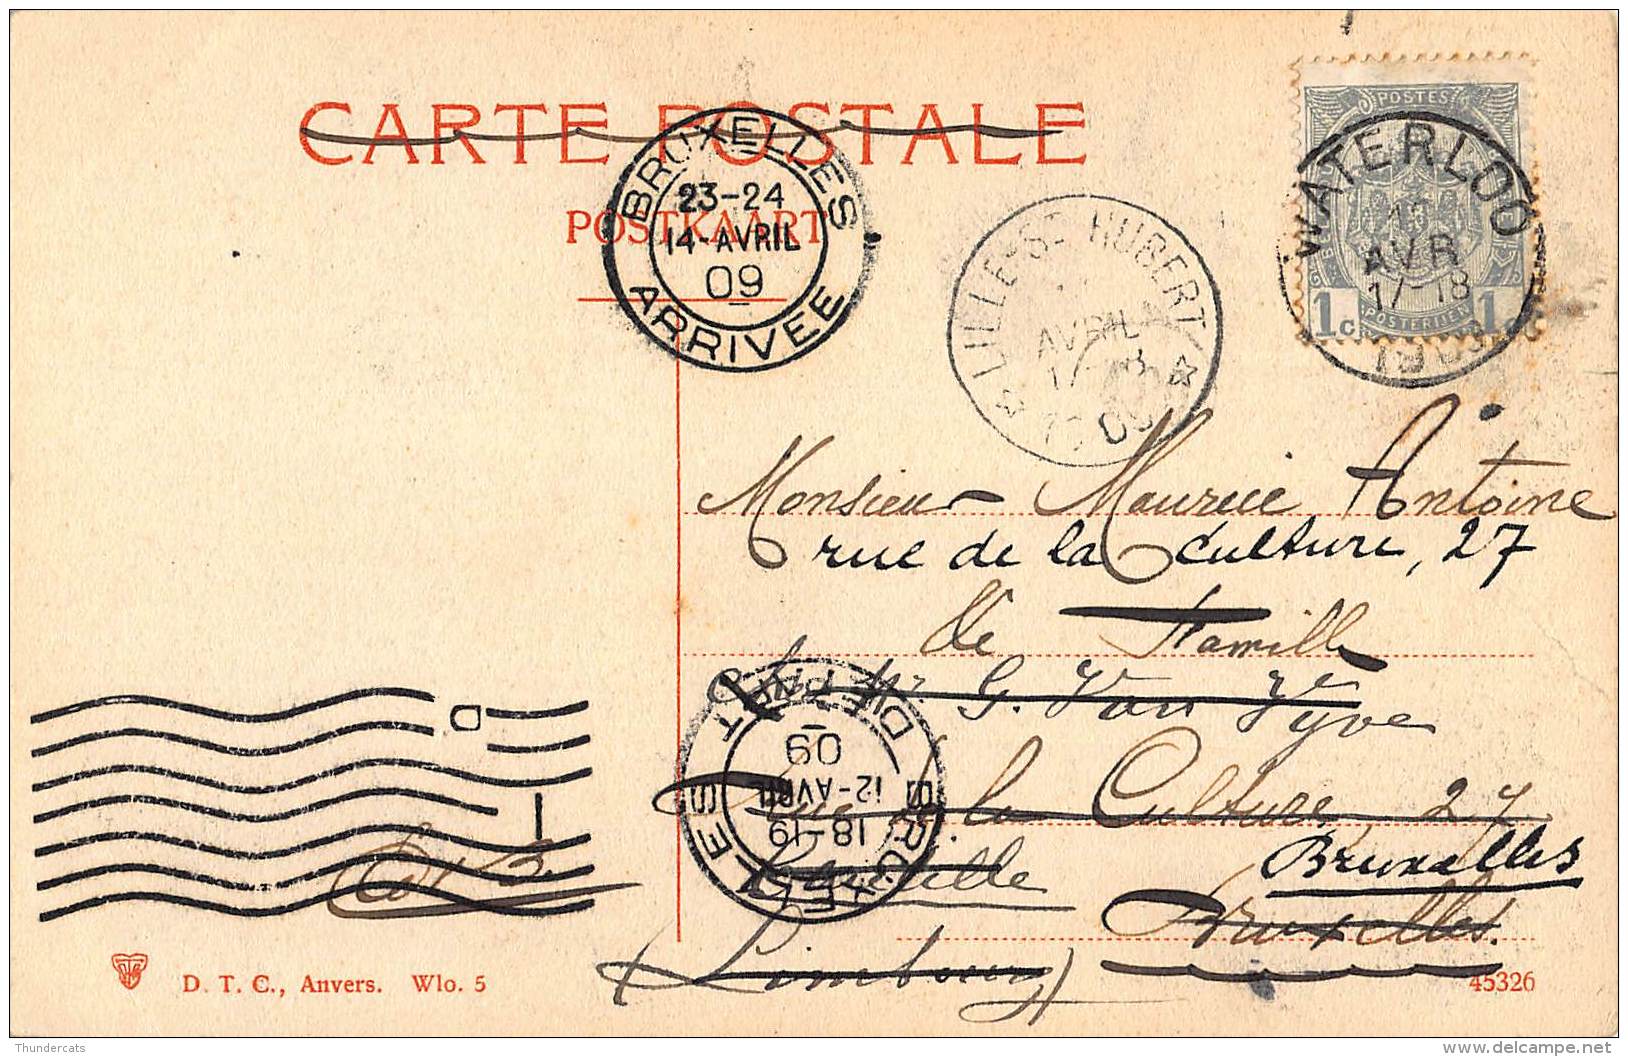 CARTE POSTALE
POSTKAART
BRUXELLES
23-24
14-AVRIL
09
ARRIVEE
LILLE-St HUBERT
AVRIL
09
POSTES
WATERLOO
AVR
17-18
1c 1c
POSTERIJEN
Monsieur Maurice Antoine
rue de la Culture, 27
de Hamille
G. Van Vyve
la Culture, 27
Bruxelles
Bruxelles.
(Limbourg)
BRUXELLES DEPART
18-19
12-AVRIL
09
D
D. T. C., Anvers. Wlo. 5
45326
Thundercats
delcampe.net